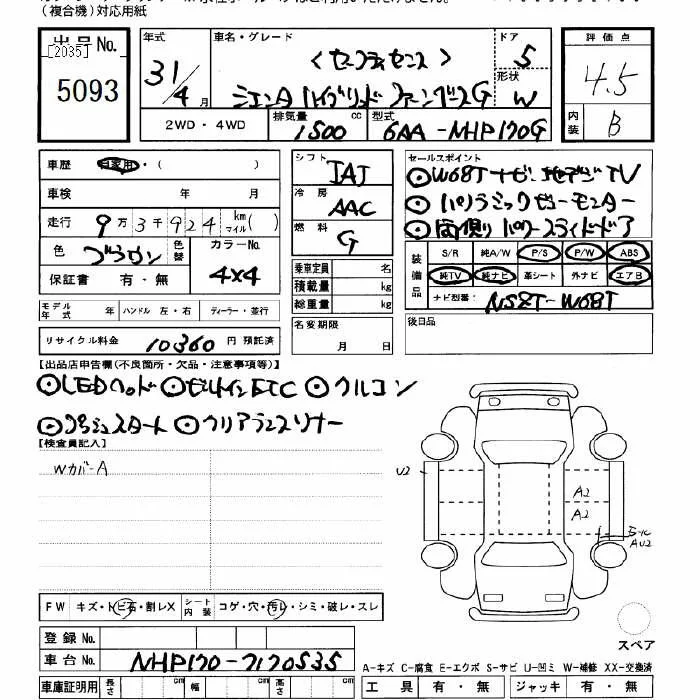 (複合機)対応用紙
出品No.
[2035]
5093
年式
31/4 月
車名・グレード
<セーフティセンス>
シエンタ ハイブリッド ファンベースG
ドア
5
形状
W
評価点
4.5
内装
B
2WD・4WD
排気量
1500 cc
型式
6AA-NHP170G
車歴
自家用・( )
車検 年 月
走行 9万3千924 km マイル( )
色 ブラウン
色替
カラーNo.
4X4
保証書 有・無
モデル年式 年 ハンドル 左・右 ディーラー・並行
リサイクル料金 10360 円 預託済
シフト
IAT
冷房
AAC
燃料
G
乗車定員 名
積載量 kg
総重量 kg
名変期限
月 日
セールスポイント
◎W68Tナビ 地デジTV
◎パノラミックビューモニター
◎両側パワースライドドア
装備品
S/R 純A/W P/S P/W ABS
純TV 純ナビ 革シート 外ナビ エアB
ナビ型番: NSZT-W68T
後日品
【出品店申告欄(不良箇所・欠品・注意事項等)】
◎LEDヘッド ◎ビルトインETC ◎クルコン
◎プッシュスタート ◎クリアランスソナー
【検査員記入】
Wカバ-A
U2
A2
A2
AU2
スペア
FW キズ・トビ石・割レX シート内装 コゲ・穴・汚レ・シミ・破レ・スレ
登録No.
車台No. NHP170-7170535
A-キズ C-腐食 E-エクボ S-サビ U-凹ミ W-補修 XX-交換済
車庫証明用 長さ cm 幅 cm 高さ cm
工具 有・無 ジャッキ 有・無